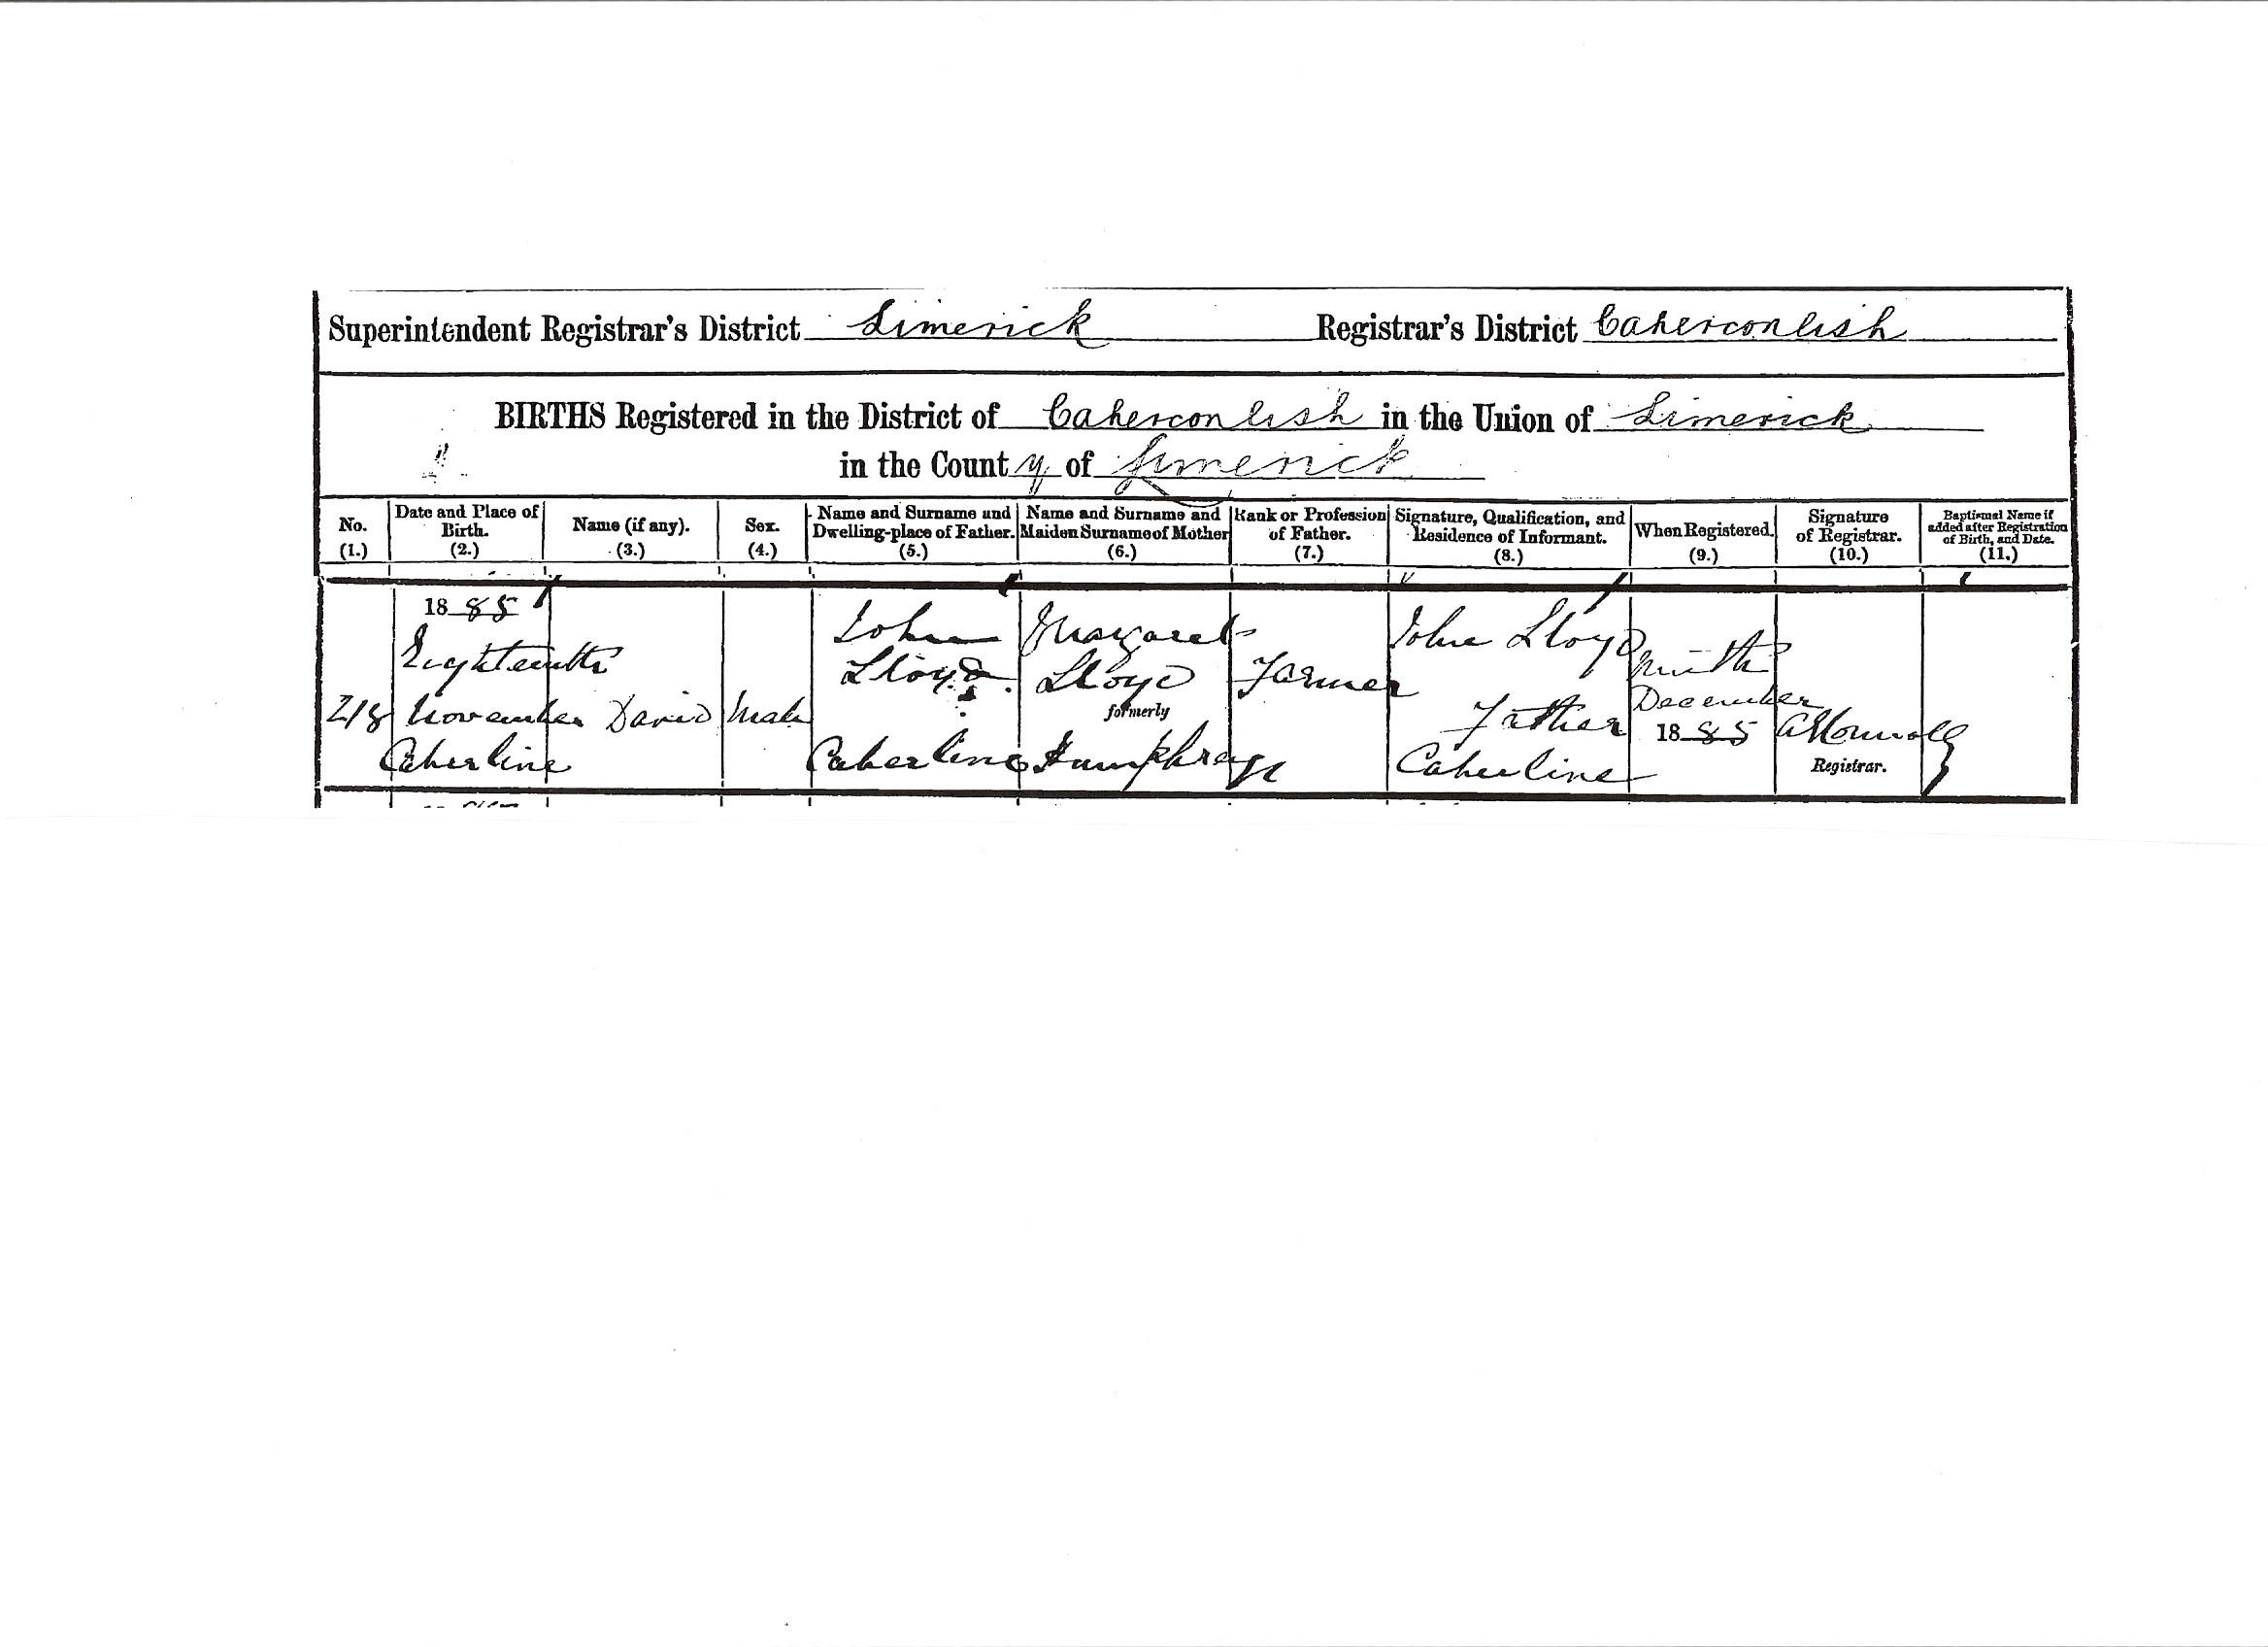 Superintendent Registrar's District Limerick Registrar's District Caherconlish
BIRTHS Registered in the District of Caherconlish in the Union of Limerick
in the County of Limerick
No. (1.)
Date and Place of Birth. (2.)
Name (if any). (3.)
Sex. (4.)
Name and Surname and Dwelling-place of Father. (5.)
Name and Surname and Maiden Surname of Mother (6.)
Rank or Profession of Father. (7.)
Signature, Qualification, and Residence of Informant. (8.)
When Registered. (9.)
Signature of Registrar. (10.)
Baptismal Name if added after Registration of Birth, and Date. (11.)
218
1885
Eighteenth
November
Caherline
David
Male
John
Lloyd
Caherline
Margaret
Lloyd
formerly
Humphreys
Farmer
John Lloyd
Father
Caherline
Ninth
December
1885
Registrar.